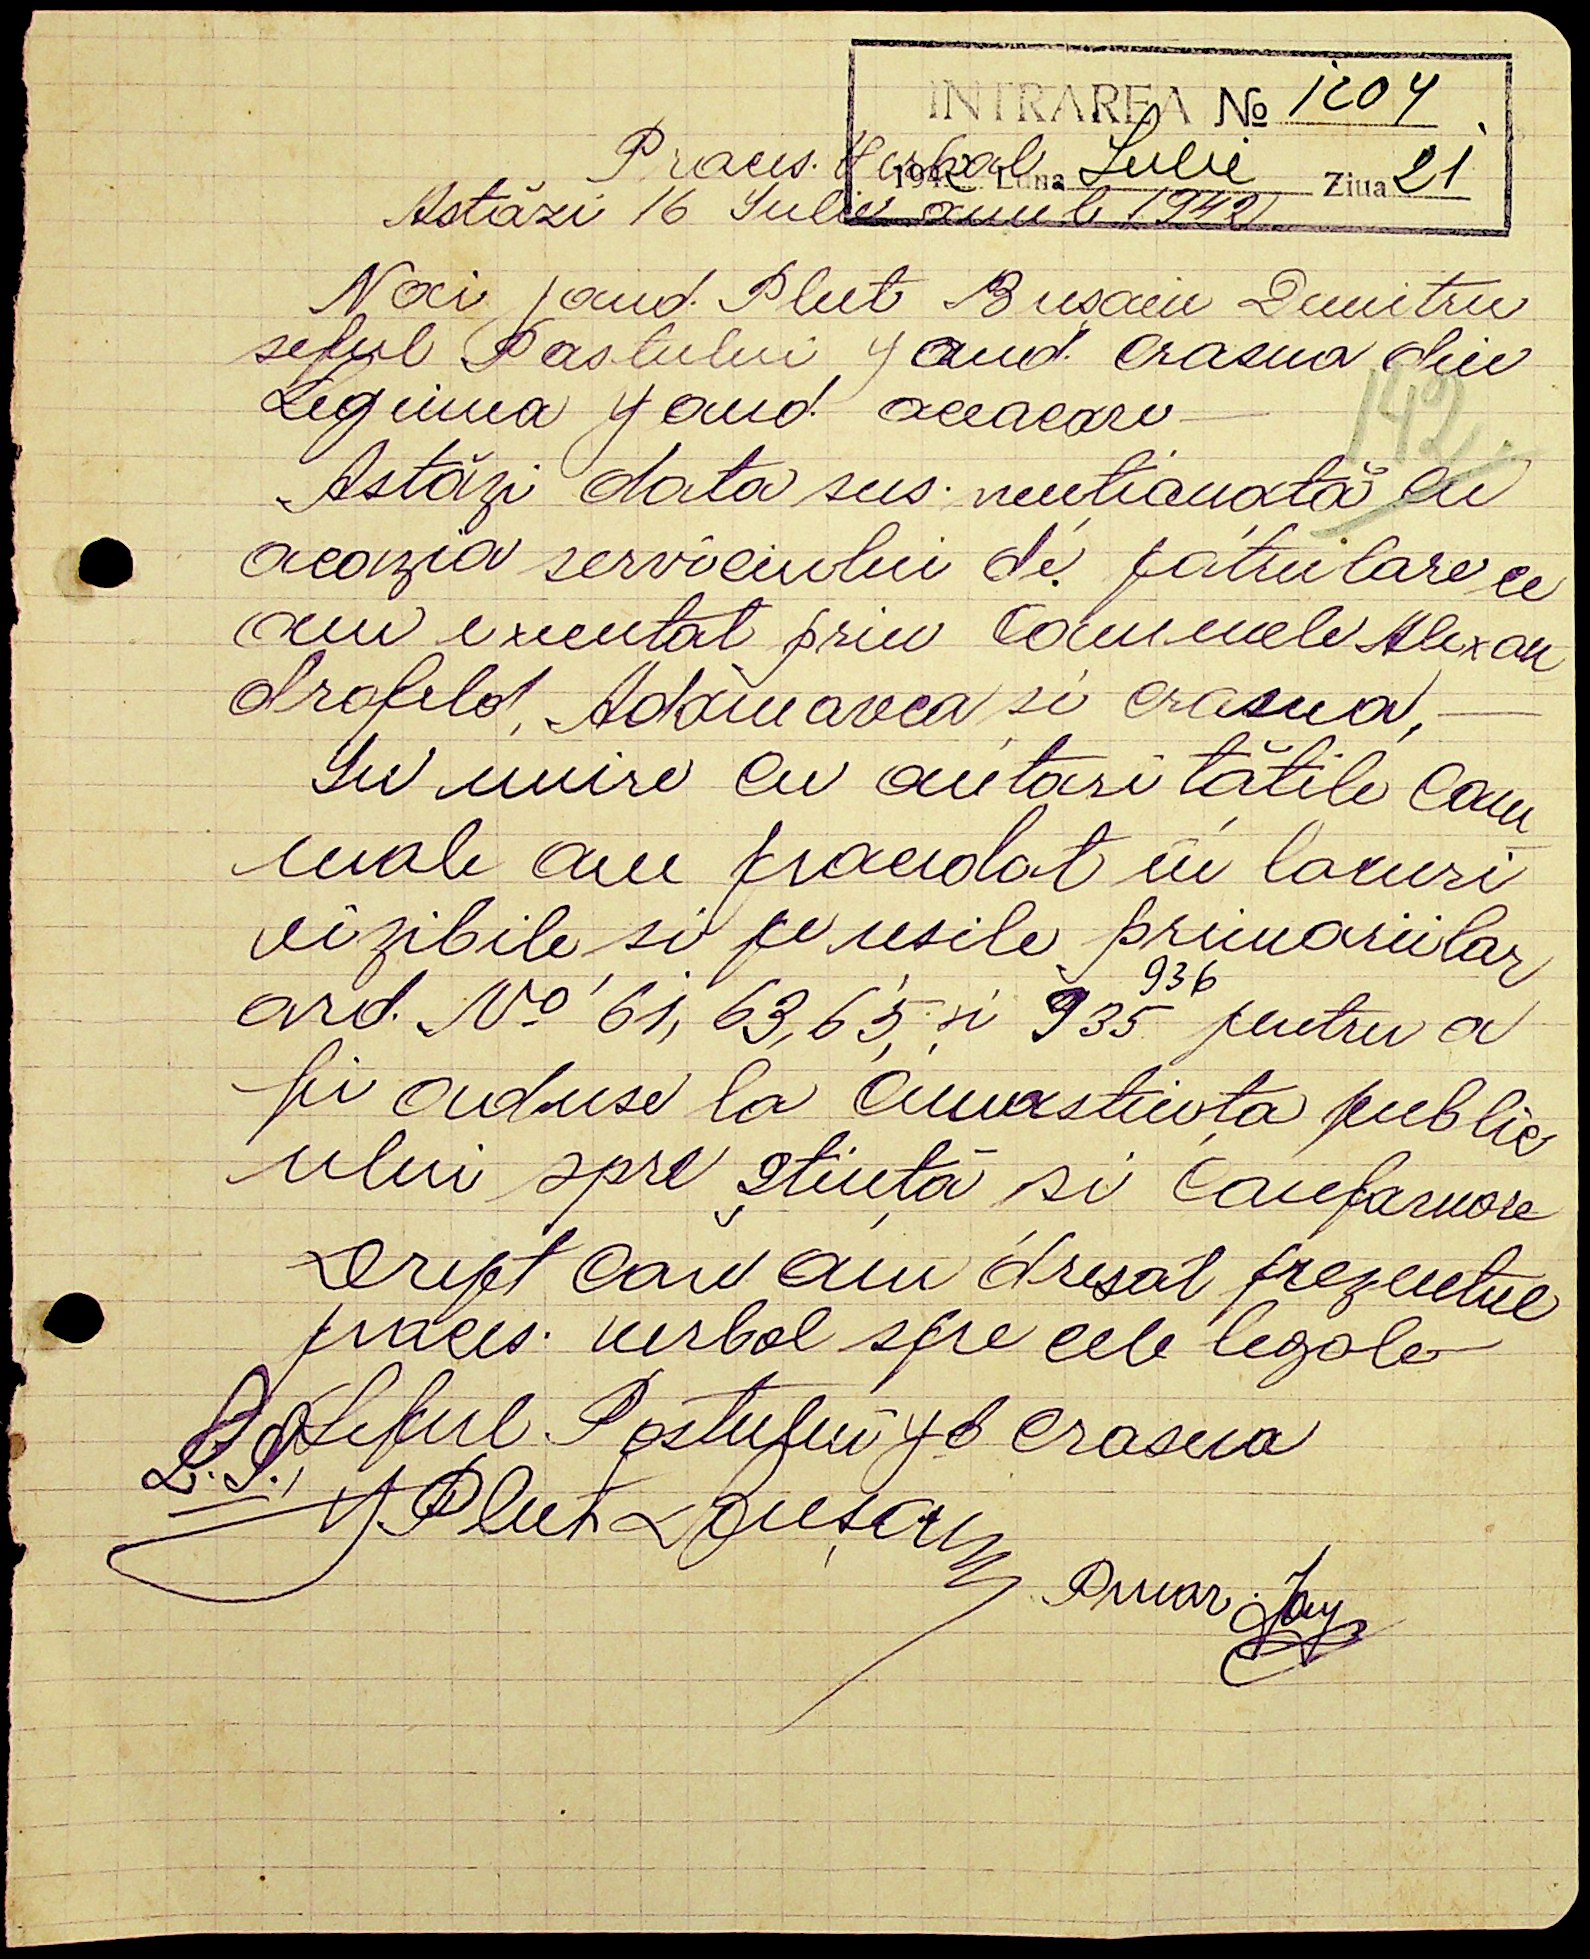 INTRAREA № 1204
1942 Luna Iulie Ziua 21
Proces. Verbal
Astăzi 16 Iulie anul 1942
142
Noi jand. Plut Bușain Dumitru
seful Postului jand. Crasna din
Legiunea jand.
Astăzi data sus. mentionată cu
ocazia serviciului de patrulare ce
am executat prin Comunele Alexan
drofeld, Adămovca si Crasna,
In unire cu autoritătile com
unale am procedat in locuri
vizibile si pe usile primariilor
ord. No 61, 63, 65, si 935 936 pentru a
fi aduse la cunostiința public
ului spre știință si conformare
Drept care am dresat prezentul
proces. verbal spre cele legale
Seful Postului jd Crasna
L.S.
Plut
Primar